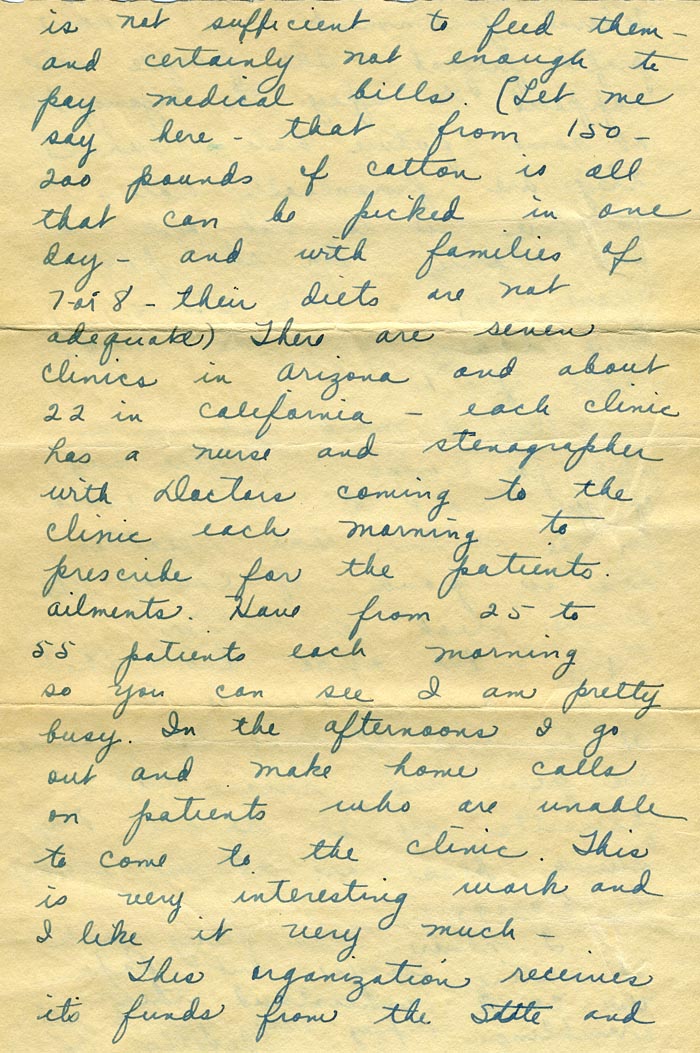 is not sufficient to feed them -
and certainly not enough to
pay medical bills. (Let me
say here - that from 150 -
200 pounds of cotton is all
that can be picked in one
day - and with families of
7 or 8 - their diets are not
adequate) There are seven
clinics in Arizona and about
22 in California - each clinic
has a nurse and stenographer
with Doctors coming to the
clinic each morning to
prescribe for the patients.
ailments. Have from 25 to
55 patients each morning
so you can see I am pretty
busy. In the afternoons I go
out and make home calls
on patients who are unable
to come to the clinic. This
is very interesting work and
I like it very much -
This organization receives
its funds from the State and